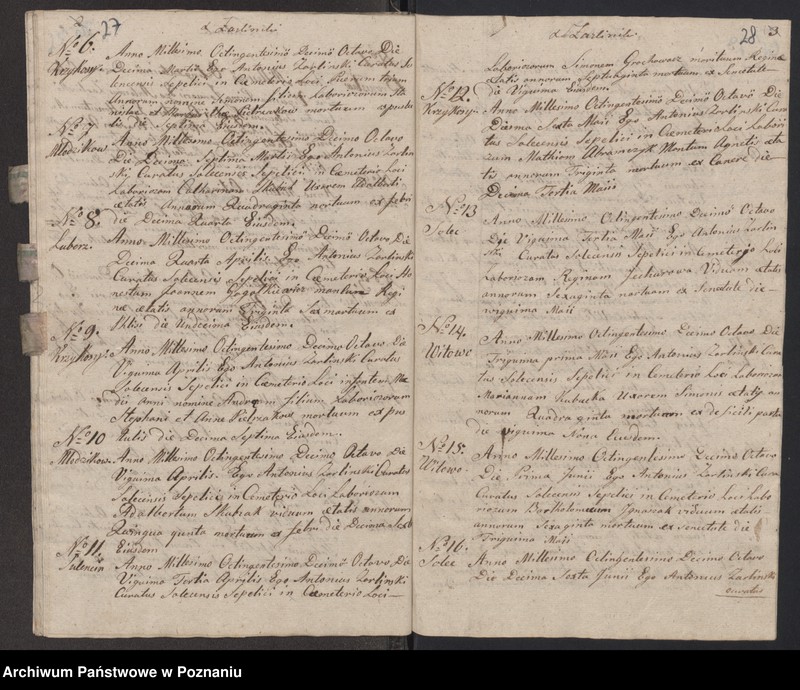 27
A. Zarlinski
No 6.
Krzykosy.
Anno Millesimo Octingentesimo Decimo Octavo Die
Decima Martii Ego Antonius Zarlinski Curatus So
lecensis Sepelivi in Cæmeterio Loci Puerum trium
Annorum nomine Simonem filium Laboriosorum
et Pietrzakow mortuum ex pustu
lis die Septima Eiusdem.
No 7
Młodzikow.
Anno Millesimo Octingentesimo Decimo Octavo
Die Decima Septima Martii Ego Antonius Zarlin
ski Curatus Solecensis Sepelivi in Cæmeterio Loci
Laboriosam Catharinam Skubak Uxorem
ætatis Annorum Quadraginta mortuam ex febri
die Decima Quarta Eiusdem.
No 8.
Luborz.
Anno Millesimo Octingentesimo Decimo Octavo Die
Decima Quarta Aprilis Ego Antonius Zarlinski
Curatus Solecensis Sepelivi in Cæmeterio Loci Ho
nestum Joannem maritum Regi
næ ætatis annorum Triginta Sex mortuum ex
Phtisi die Undecima Eiusdem.
No 9.
Krzykosy.
Anno Millesimo Octingentesimo Decimo Octavo Die
Vigesima Aprilis Ego Antonius Zarlinski Curatus
Solecensis Sepelivi in Cæmeterio Loci infantem Me
dii Anni nomine Andream filium Laboriosorum
Stephani et Annæ Pietrzakow mortuum ex pus
tulis die Decima Septima Eiusdem.
No 10
Młodzikow.
Anno Millesimo Octingentesimo Decimo Octavo Die
Vigesima Aprilis Ego Antonius Zarlinski Curatus
Solecensis Sepelivi in Cæmeterio Loci Laboriosum
Adalbertum Skubak viduum ætatis annorum
Quinquaginta mortuum ex febri die Decima Sexta
Eiusdem
No 11.
Sulencin
Anno Millesimo Octingentesimo Decimo Octavo Die
Vigesima Tertia Aprilis Ego Antonius Zarlinski
Curatus Solecensis Sepelivi in Cæmeterio Loci
28
A. Zarlinski
Laboriosum Simonem Grochowacz maritum Reginæ
ætatis annorum Septuaginta mortuum ex Senectute
die Vigesima Eiusdem.
No 12.
Krzykosy.
Anno Millesimo Octingentesimo Decimo Octavo Die
Decima Sexta Maii Ego Antonius Zarlinski Cura
tus Solecensis Sepelivi in Cæmeterio Loci Labori
osum Mathiam Abramczyk Maritum Agnetis æta
tis annorum Triginta mortuum ex Cancre die
Decima Tertia Maii
No 13
Solec
Anno Millesimo Octingentesimo Decimo Octavo
Die Vigesima Tertia Maii Ego Antonius Zarlin
ski Curatus Solecensis Sepelivi in Cemeterio Loci
Laboriosam Reginam Viduam ætatis
annorum Sexaginta mortuam ex Senectute die
vigesima Maii
No 14.
Witowo
Anno Millesimo Octingentesimo Decimo Octavo Die
Trigesima prima Maii Ego Antonius Zarlinski Cura
tus Solecensis Sepelivi in Cemeterio Loci Laboriosam
Mariannam Kubacka Uxorem Simonis ætatis an
norum Quadraginta mortuam ex deficili partu
die vigesima Nona Eiusdem.
No 15.
Witowo.
Anno Millesimo Octingentesimo Decimo Octavo
Die Prima Junii Ego Antonius Zarlinski Cura
Curatus Solecensis Sepelivi in Cemeterio Loci Labo
riosum Bartholomeum Ignaszak viduum ætatis
annorum Sexaginta mortuum ex senectute die
Trigesima Maii
No 16.
Solec
Anno Millesimo Octingentesimo Decimo Octavo
Die Decima Sexta Junii Ego Antonius Zarlinski
curatus
Archiwum Państwowe w Poznaniu